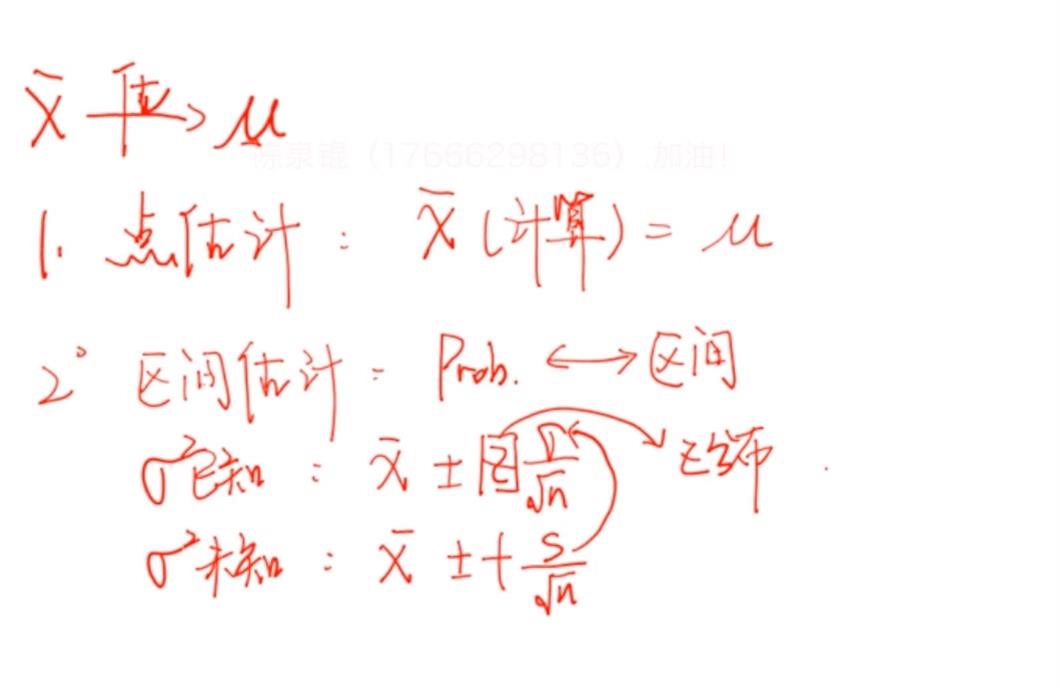 x̄ 估→ μ
陈泉锟（17666298136）,加油！
1. 点估计： x̄ (计算) = μ
2° 区间估计： Prob. ↔ 区间
σ²已知： x̄ ± z σ/√n z分布
σ²未知： x̄ ± t s/√n